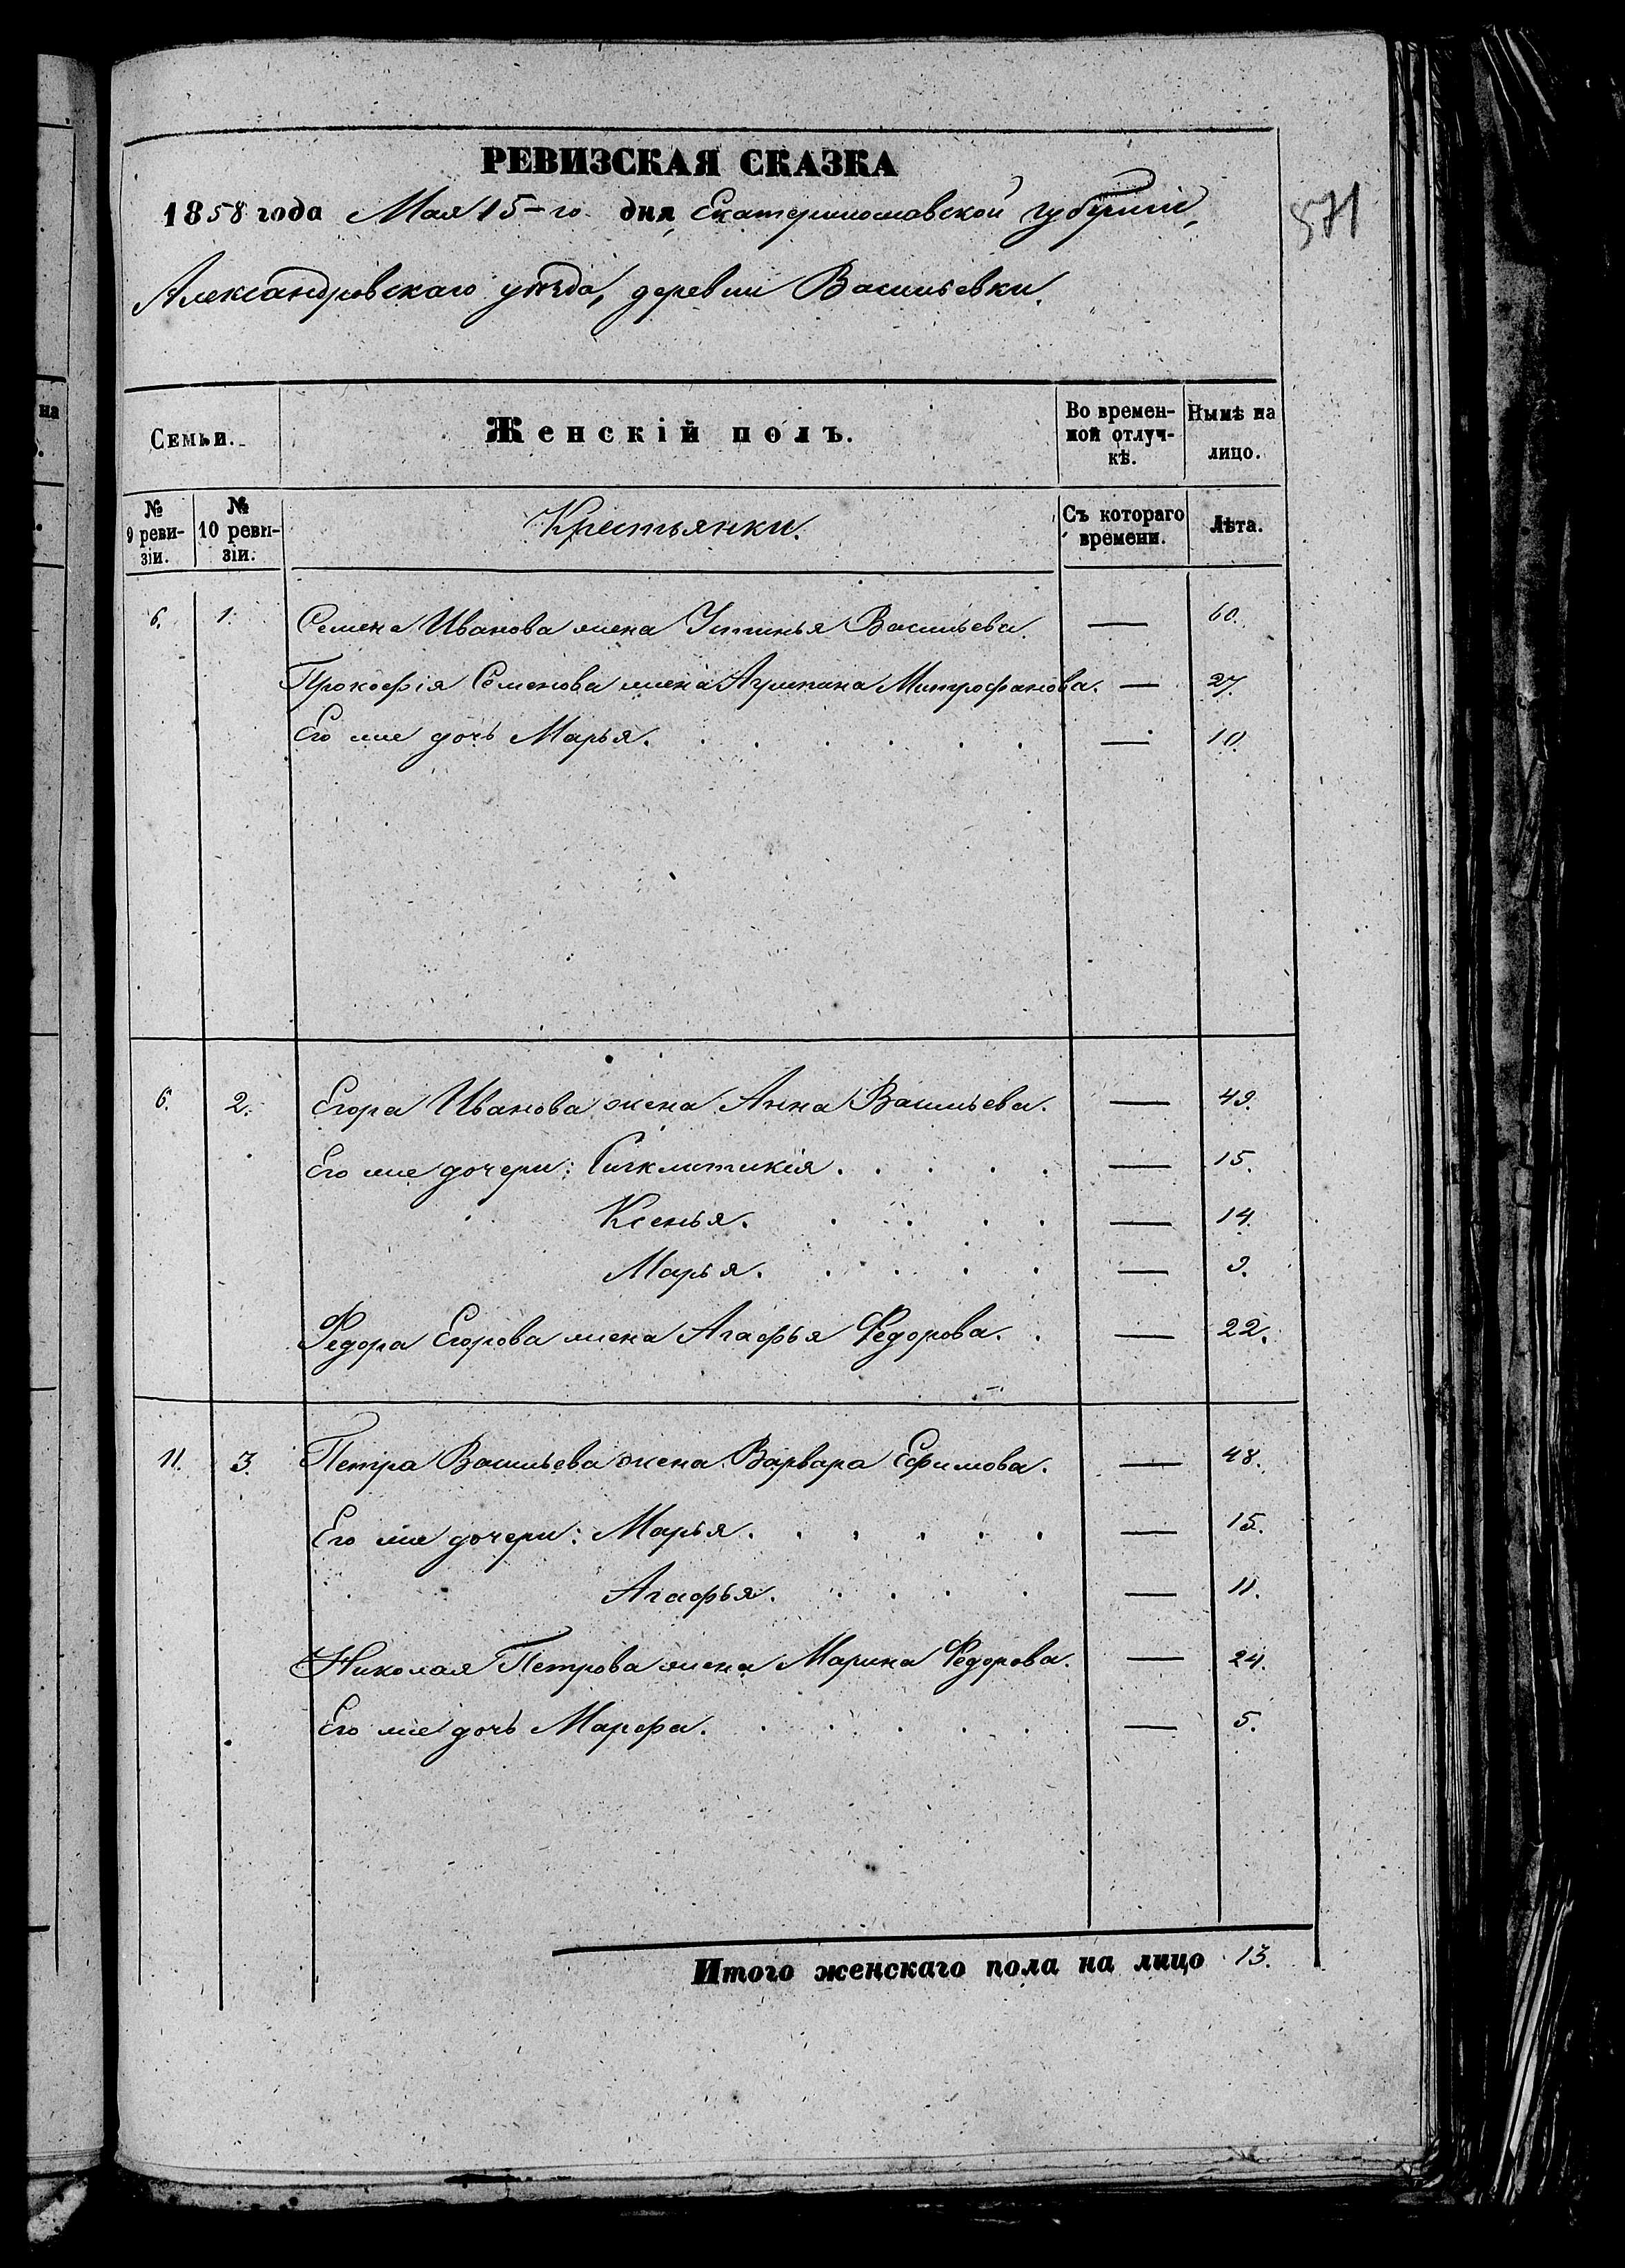 РЕВИЗСКАЯ СКАЗКА
1858 года Мая 15-го дня, Екатеринославской губерніи,
571
Александровскаго уѣзда, деревни Васильевки.
Семьи.
Женскій полъ.
Во времен-
ной отлуч-
кѣ.
Нынѣ на
лицо.
№
9 реви-
зіи.
№
10 реви-
зіи.
Крестьянки.
Съ котораго
времени.
Лѣта.
6. 1. Семена Иванова жена Устинья Васильева. — 60.
Прокофія Семенова жена Агрипина Митрофанова. — 27.
Его же дочь Марья. — 10.
6. 2. Егора Иванова жена Анна Васильева. — 49.
Его же дочери: Сигклитикія. — 15.
Ксенья. — 14.
Марья. — 9.
Федора Егорова жена Агафья Федорова. — 22.
11. 3. Петра Васильева жена Варвара Ефимова. — 48.
Его же дочери: Марья. — 15.
Агафья. — 11.
Николая Петрова жена Марина Федорова. — 24.
Его же дочь Марфа. — 5.
Итого женскаго пола на лицо 13.